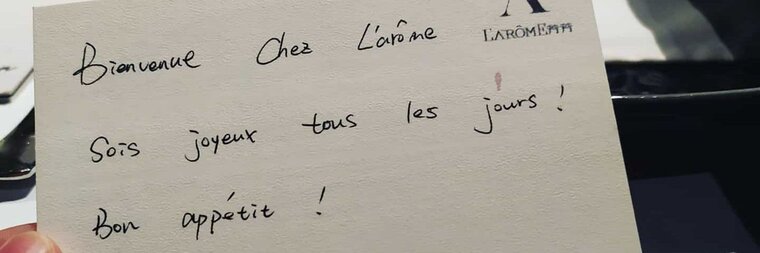 L'ARÔME
Bienvenue Chez L'arôme
Sois joyeux tous les jours !
Bon appétit !